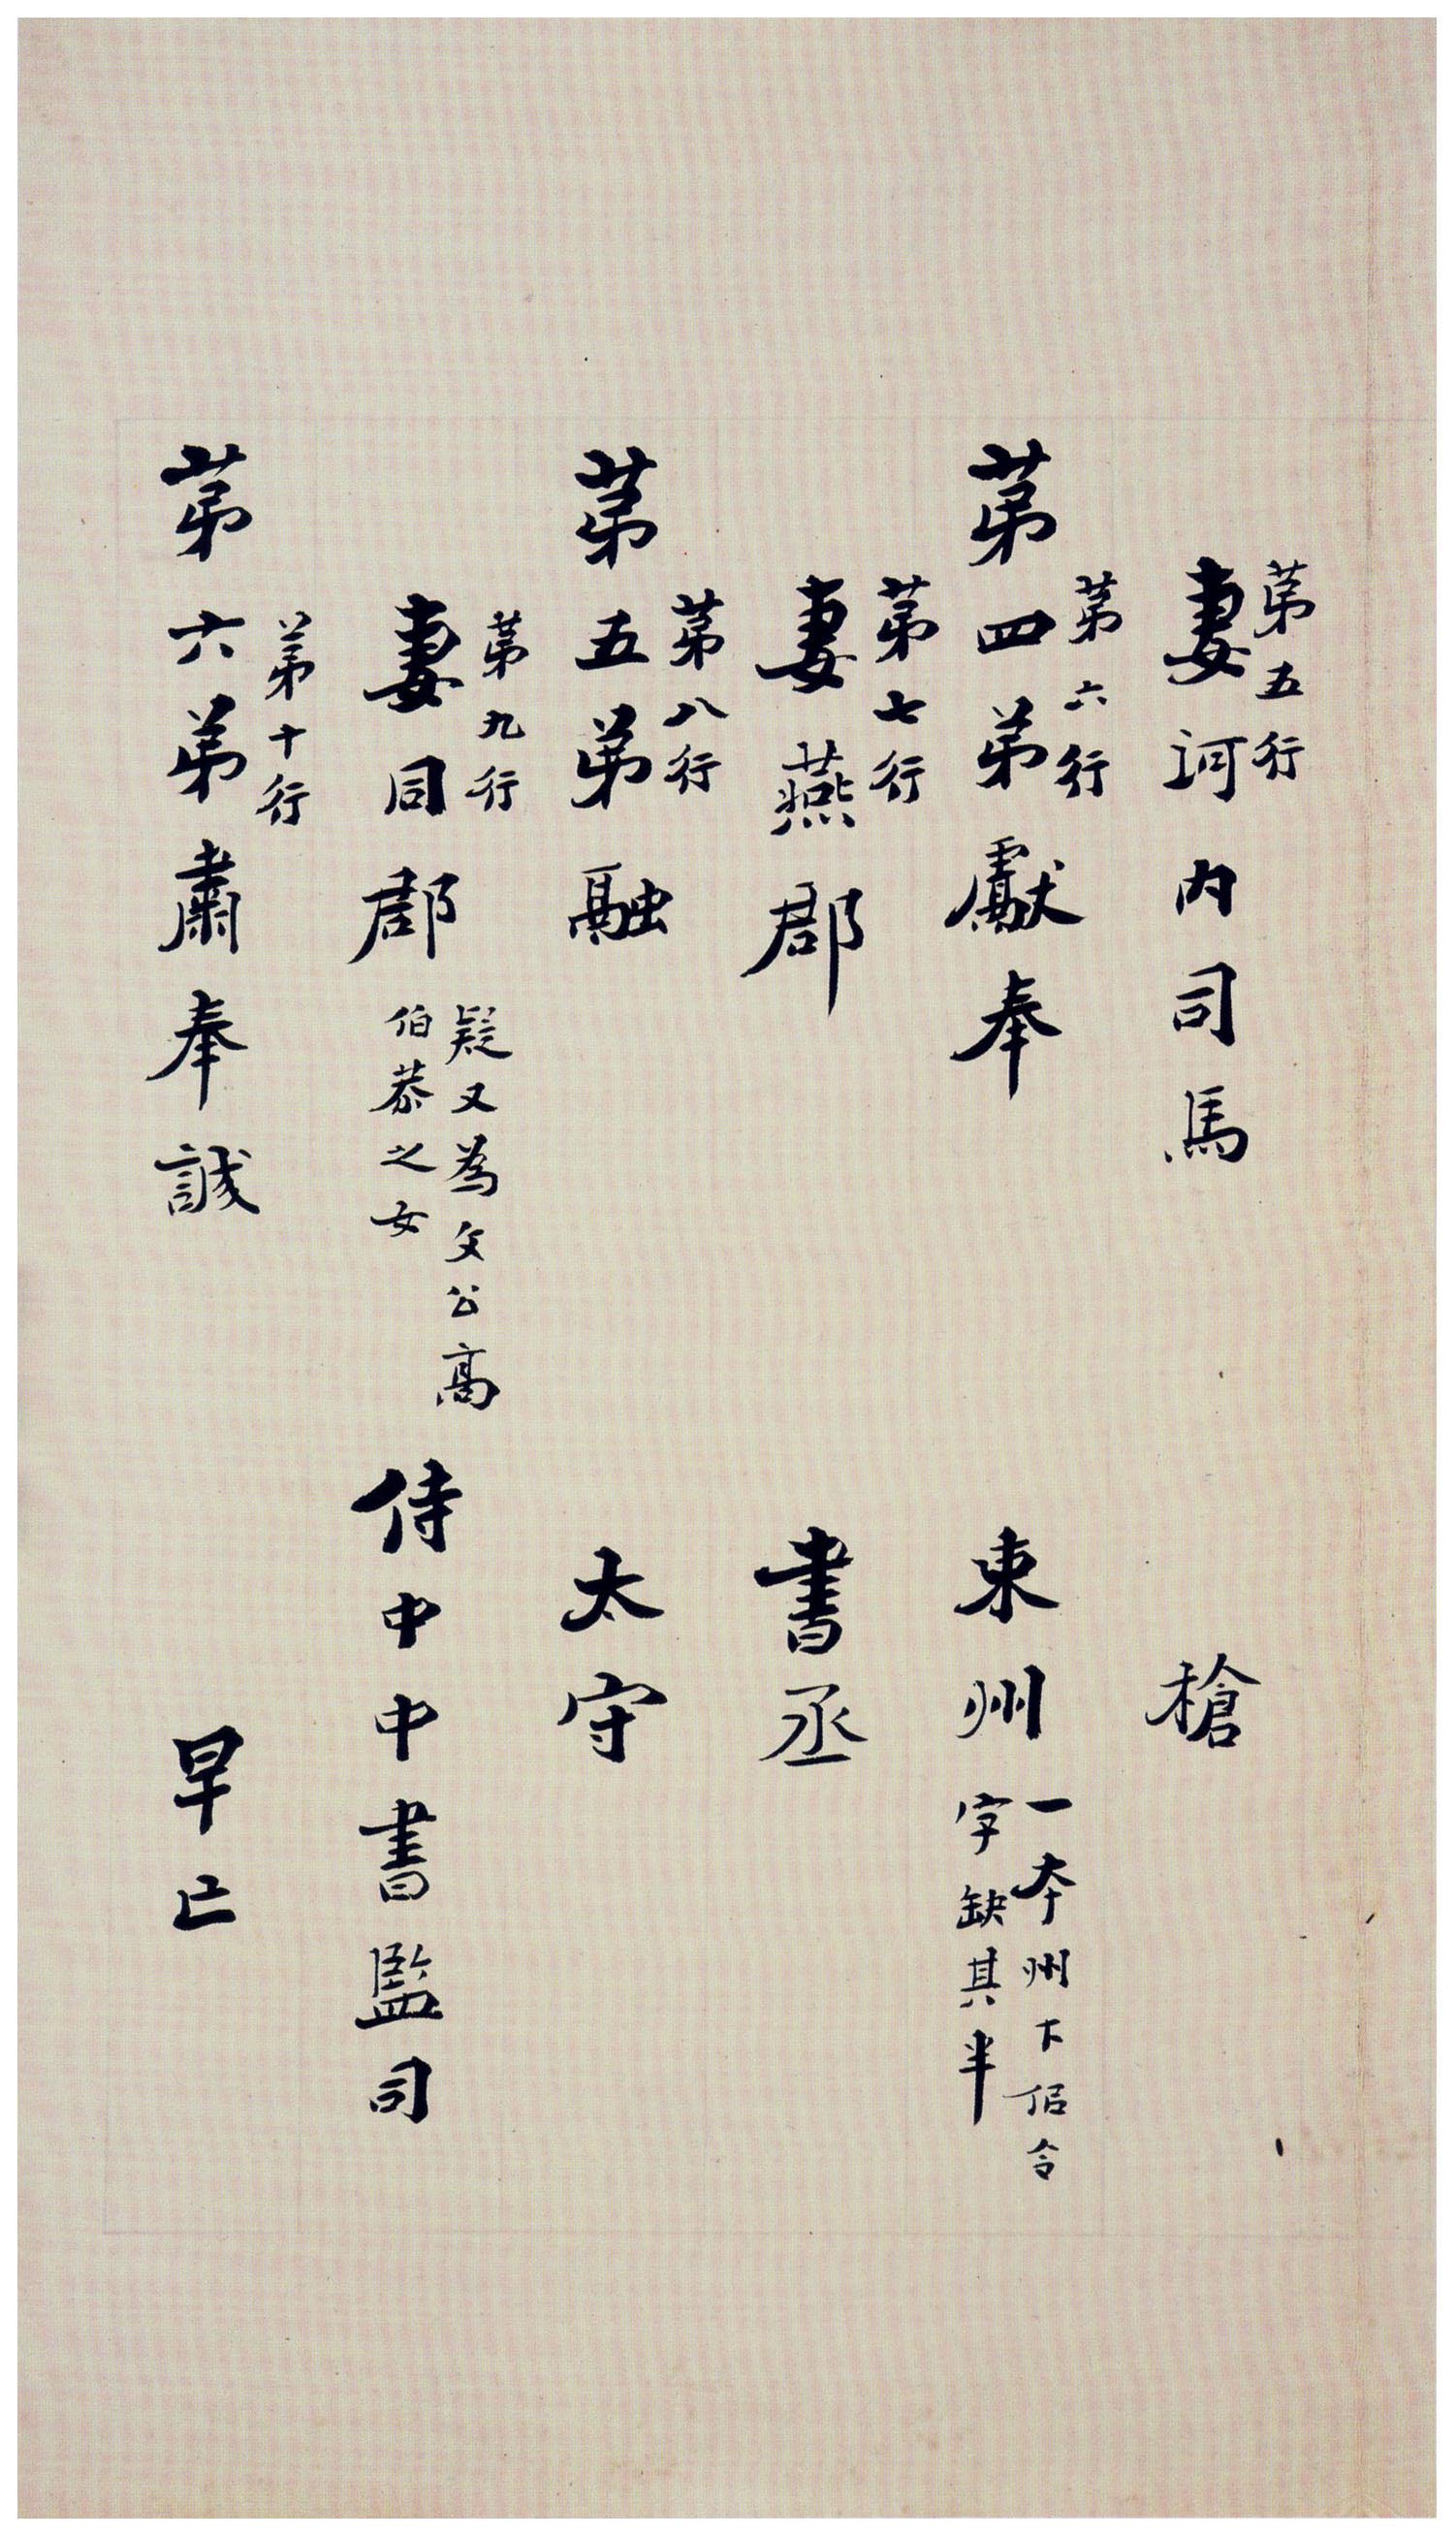 第五行
妻河内司馬
槍
第六行
第四弟獻奉
東州
一本州下侶令
字缺其半
第七行
妻燕郡
書丞
第八行
第五弟融
太守
第九行
妻同郡
疑又為父公高
伯恭之女
侍中中書監司
第十行
第六弟肅奉誠
早亡